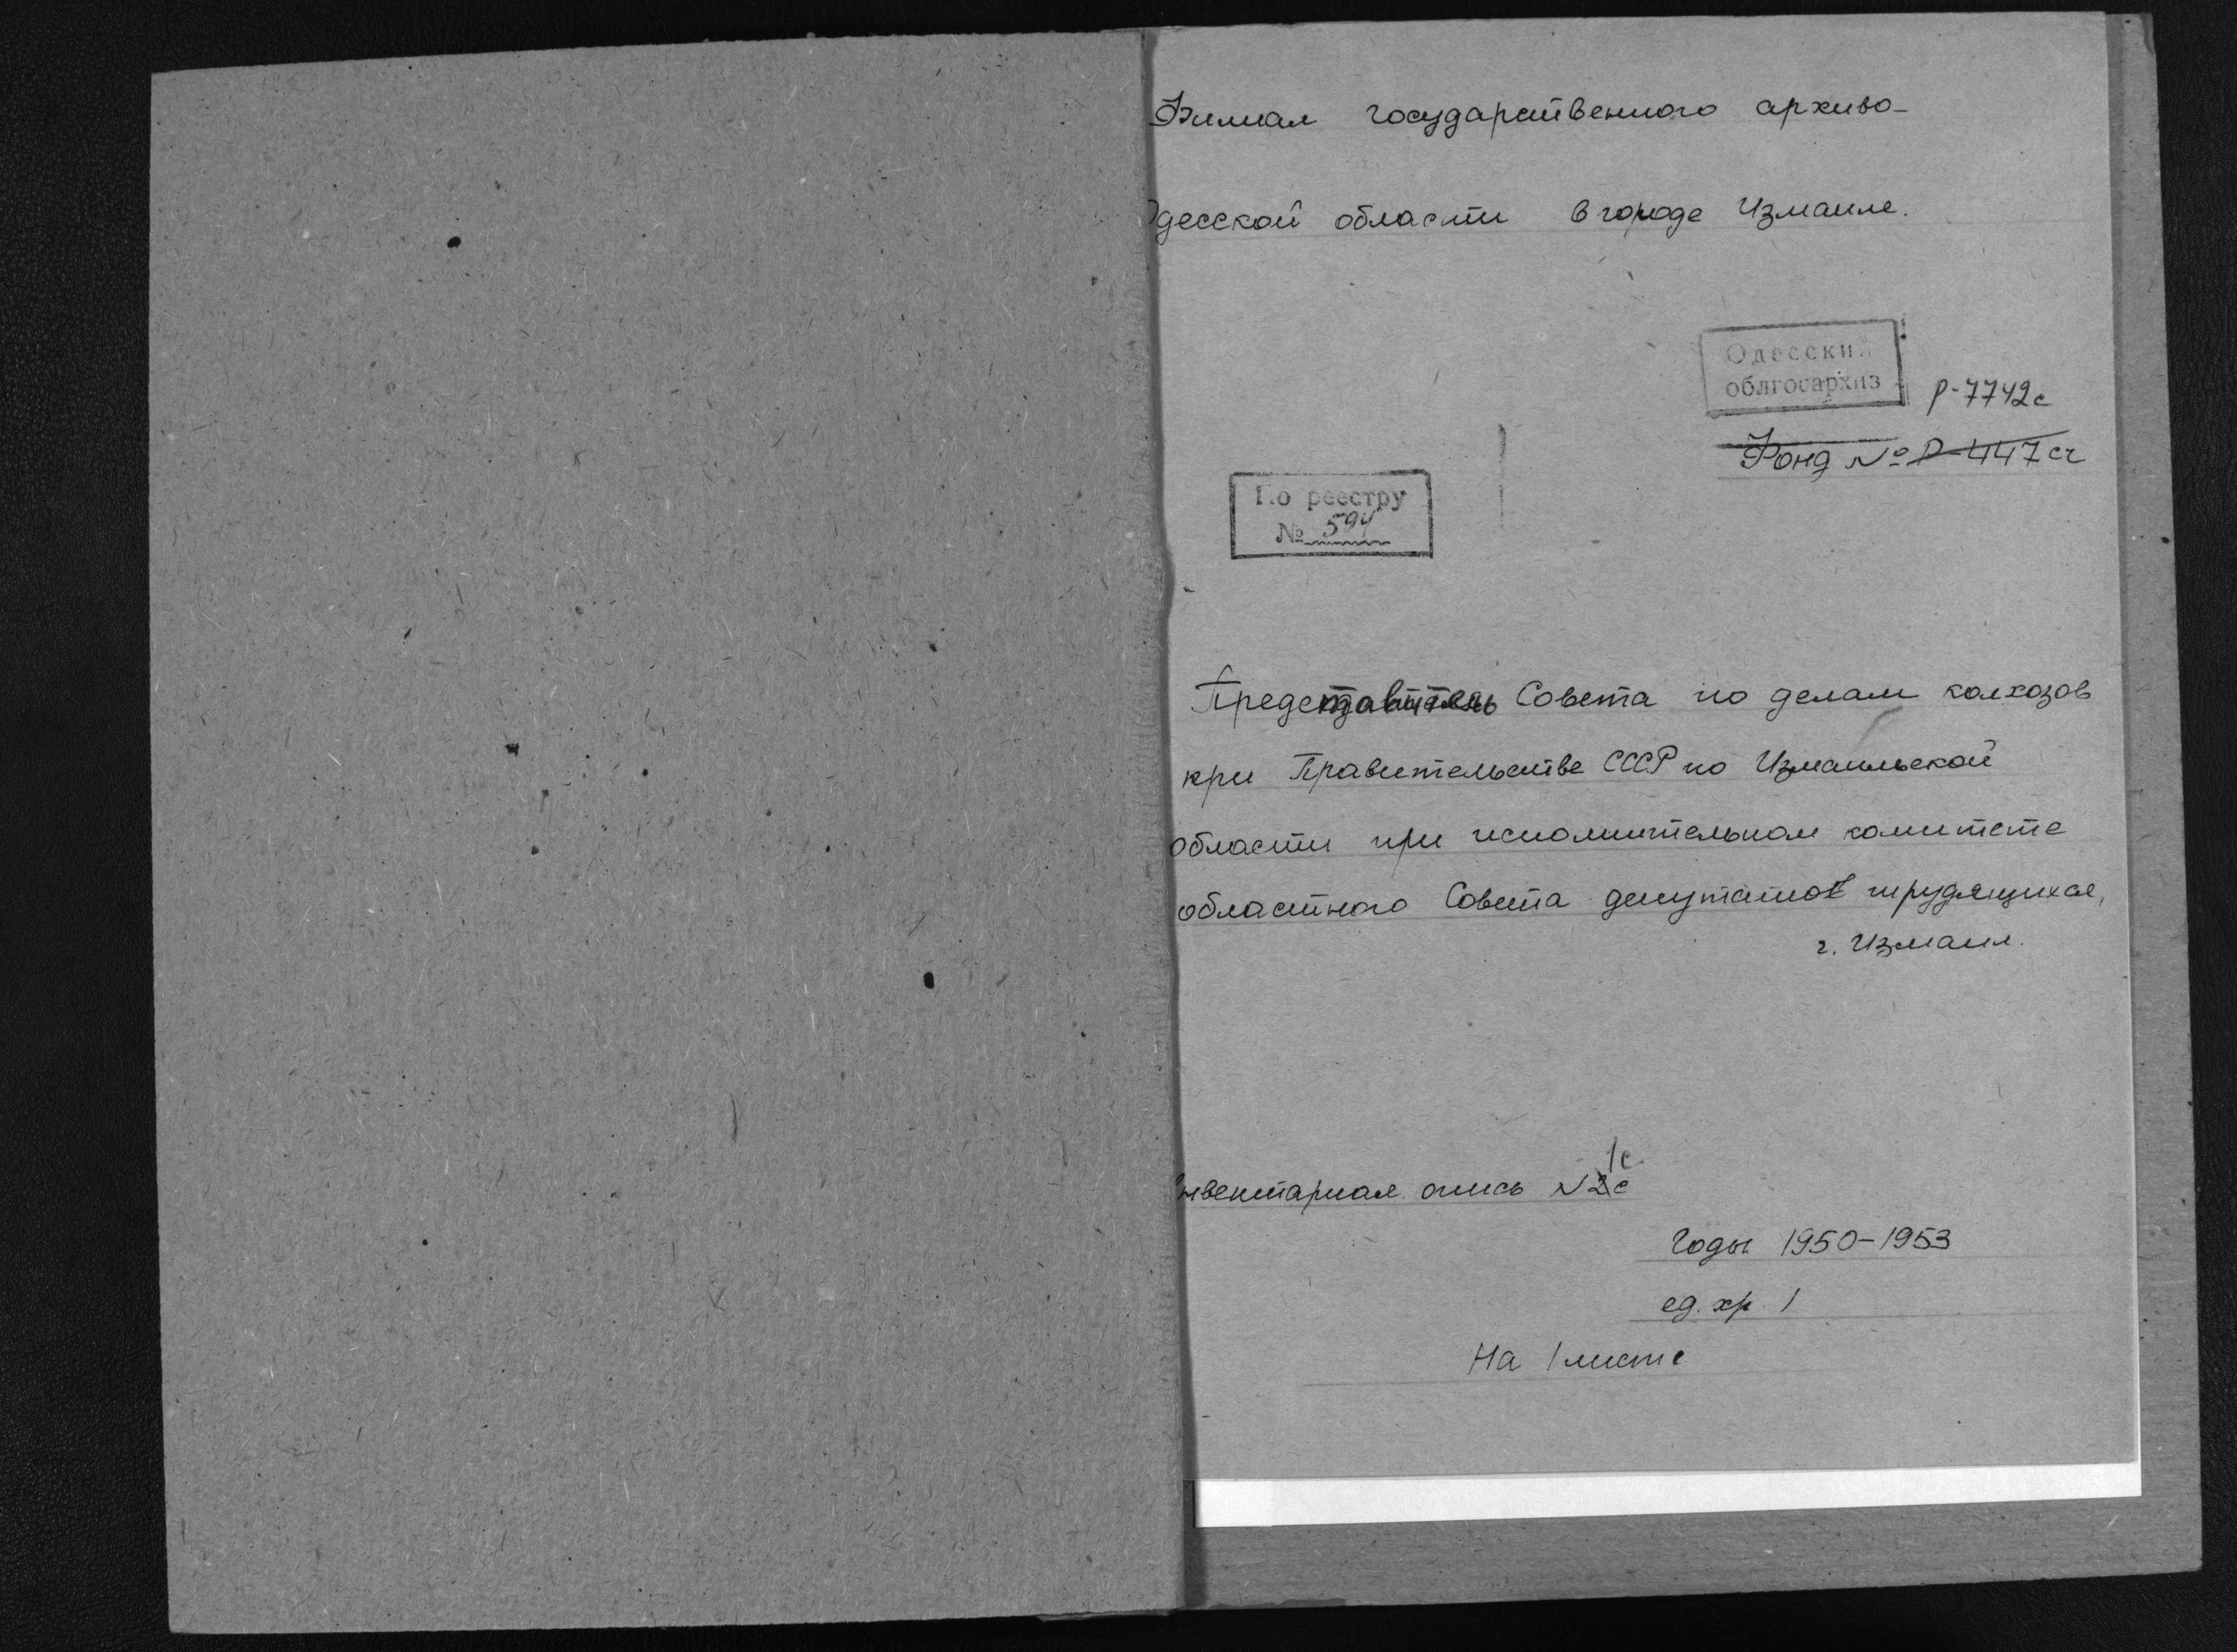 Филиал государственного архива
Одесской области в городе Измаиле.
Одесский
облгосархив
Р-7742с
Фонд № Р-447сч
По реестру
№ 594
Представитель Совета по делам колхозов
при Правительстве СССР по Измаильской
области при исполнительном комитете
областного Совета депутатов трудящихся,
г. Измаил.
1с
Инвентарная опись N2с
Годы 1950-1953
ед. хр. 1
На 1 листе